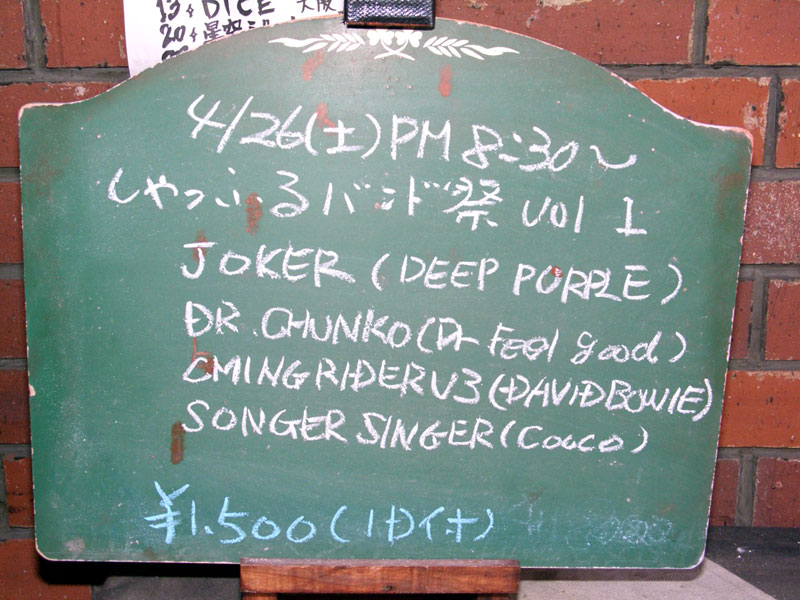 13 DICE 大阪
20 星空
4/26(土)PM 8:30〜
しゃっふるバンド祭 vol 1
JOKER (DEEP PURPLE)
DR. CHUNKO(Dr Feel good)
CMING RIDER V3 (DAVID BOWIE)
SONGER SINGER (Cocco)
¥1.500(1D付)